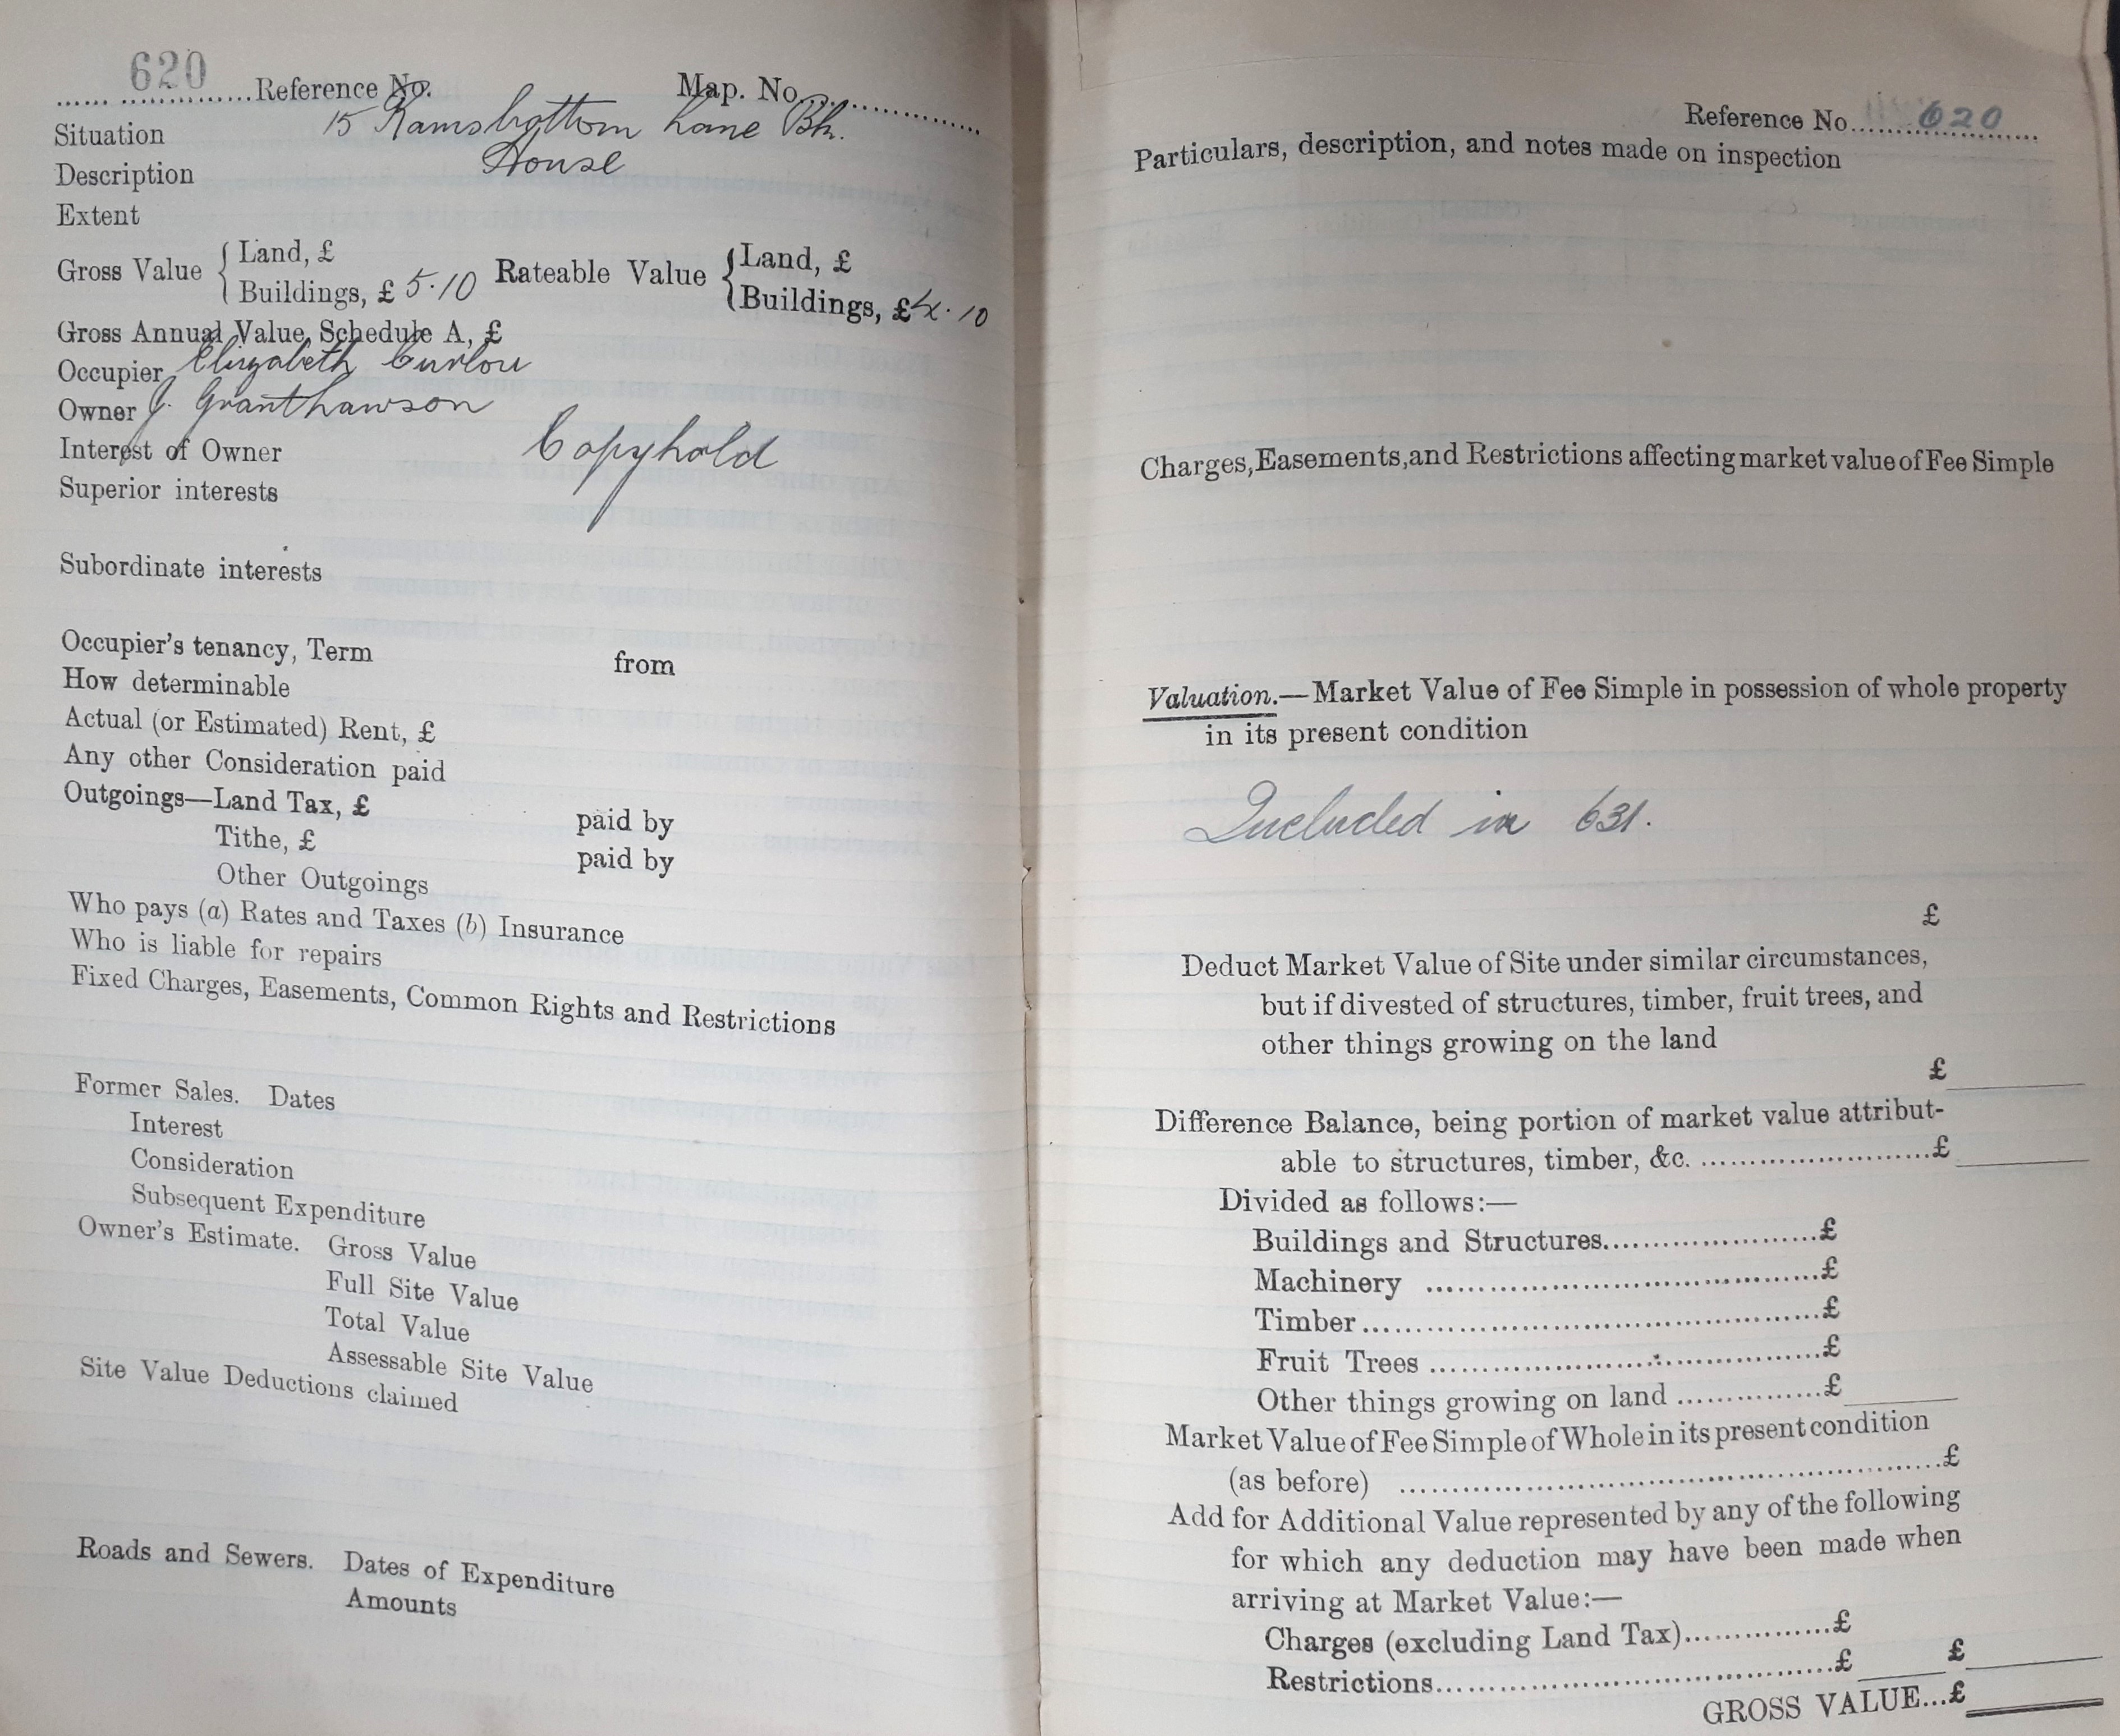 620
...... ...............Reference No. Map. No....................
Situation 15 Ramsbottom Lane Bk.
Description House
Extent
Gross Value { Land, £ Rateable Value { Land, £
Buildings, £ 5.10 Buildings, £4.10
Gross Annual Value, Schedule A, £
Occupier Elizabeth
Owner J. Granthawson
Interest of Owner Copyhold
Superior interests
Subordinate interests
Occupier's tenancy, Term from
How determinable
Actual (or Estimated) Rent, £
Any other Consideration paid
Outgoings—Land Tax, £ paid by
Tithe, £ paid by
Other Outgoings
Who pays (a) Rates and Taxes (b) Insurance
Who is liable for repairs
Fixed Charges, Easements, Common Rights and Restrictions
Former Sales. Dates
Interest
Consideration
Subsequent Expenditure
Owner's Estimate. Gross Value
Full Site Value
Total Value
Assessable Site Value
Site Value Deductions claimed
Roads and Sewers. Dates of Expenditure
Amounts
Reference No.......620.......
Particulars, description, and notes made on inspection
Charges, Easements, and Restrictions affecting market value of Fee Simple
Valuation.—Market Value of Fee Simple in possession of whole property
in its present condition
Included in 631.
£
Deduct Market Value of Site under similar circumstances,
but if divested of structures, timber, fruit trees, and
other things growing on the land
£
Difference Balance, being portion of market value attribut-
able to structures, timber, &c. ..........................£
Divided as follows:—
Buildings and Structures........................£
Machinery ............................................£
Timber...................................................£
Fruit Trees ............................................£
Other things growing on land ................£
Market Value of Fee Simple of Whole in its present condition
(as before) ............................................................£
Add for Additional Value represented by any of the following
for which any deduction may have been made when
arriving at Market Value:—
Charges (excluding Land Tax)................£
Restrictions............................................£ £
GROSS VALUE...£